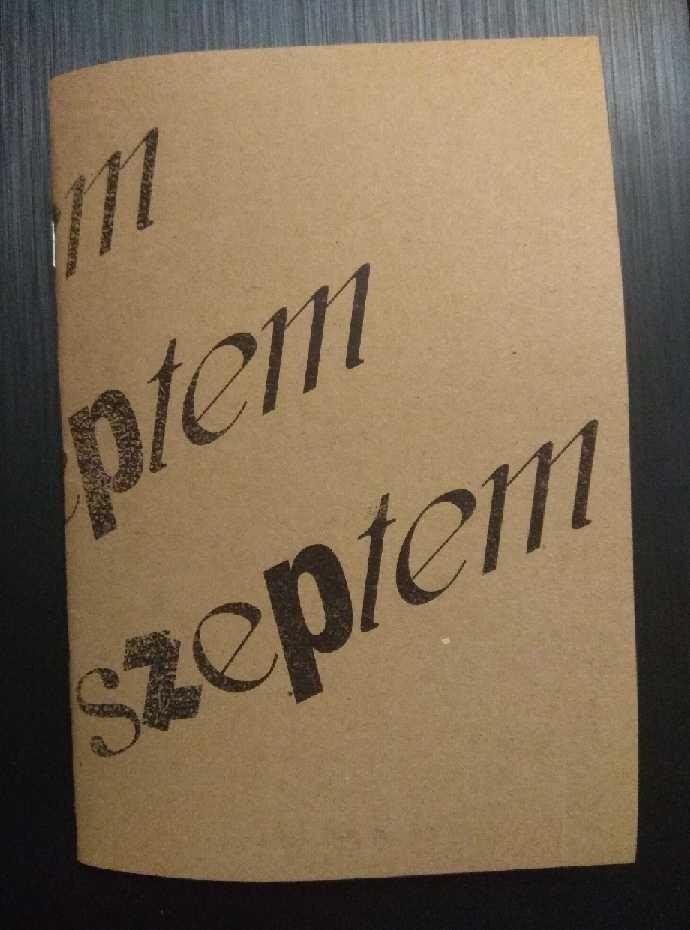 m
eptem
szeptem